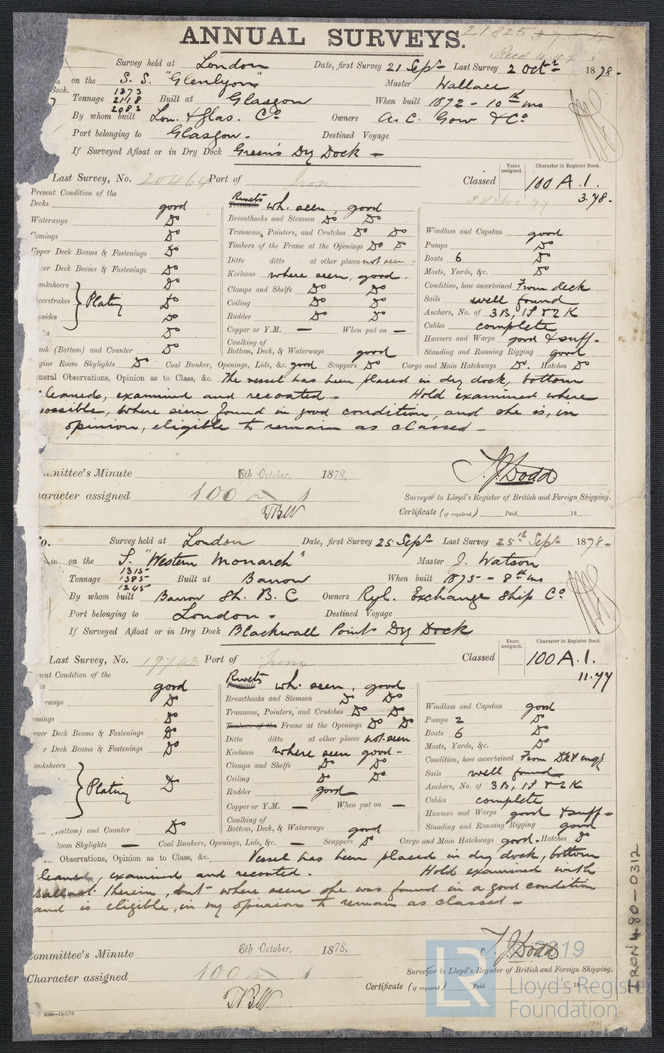 ANNUAL SURVEYS.
21825
Survey held at London Date, first Survey 21 Sept Last Survey 2 Octr 1878-
on the S. S. "Glenlyon" Master Wallace
Book. 1373
Tonnage 2118 Built at Glasgow When built 1872 - 10th mo
2083
By whom built Lon. & Glas. Co Owners A. C. Gow & Co
Port belonging to Glasgow. Destined Voyage
If Surveyed Afloat or in Dry Dock Green's Dry Dock -
Last Survey, No. 20464 Port of Iron Classed Years assigned. Character in Register Book. 100 A. 1.
3.78.
Present Condition of the
Decks good
Waterways Do
Comings Do
Upper Deck Beams & Fastenings Do
er Deck Beams & Fastenings Do
anksheers Do
eerstrakes } Plating Do
psides Do
Do
ank (Bottom) and Counter Do
Rivets wh. seen, good
Breasthooks and Stemson Do Do
Transoms, Pointers, and Crutches Do Do
Timbers of the Frame at the Openings Do Do
Ditto ditto at other places not seen -
Keelsons where seen, good.
Clamps and Shelfs Do Do
Ceiling Do Do
Rudder Do Do
Copper or Y.M. — When put on —
Caulking of
Bottom, Deck, & Waterways good
Windlass and Capstan good
Pumps Do
Boats 6 Do
Masts, Yards, &c. Do
Condition, how ascertained From deck
Sails well found
Anchors, No. of 3B, 1S & 2K
Cables complete
Hawsers and Warps good & suff-
Standing and Running Rigging good
gine Room Skylights Do Coal Bunker, Openings, Lids, &c. good Scuppers Do Cargo and Main Hatchways Do. Hatches Do
neral Observations, Opinion as to Class, &c. The vessel has been placed in dry dock, bottom
cleaned, examined and recoated - Hold examined where
possible, where seen found in good condition, and she is, in
opinion, eligible to remain as classed -
mmittee's Minute 8th October, 1878.
T. J. Dodd
haracter assigned 100 A 1
Surveyor to Lloyd's Register of British and Foreign Shipping.
TBW
Certificate (if required) Paid 18
o. Survey held at London Date, first Survey 25 Sept Last Survey 25th Sept 1878-
on the S. "Western Monarch" Master J. Watson
1315
Tonnage 1385 Built at Barrow When built 1875 - 8th mo
1245
By whom built Barrow Sh. B. C Owners Ryl. Exchange Ship Co.
Port belonging to London. Destined Voyage
If Surveyed Afloat or in Dry Dock Blackwall Point Dry Dock
Last Survey, No. 19743 Port of Iron Classed Years assigned. Character in Register Book. 100 A. 1.
11.77
ent Condition of the
good
rways Do
mings Do
pper Deck Beams & Fastenings Do
r Deck Beams & Fastenings Do
anksheers
} Plating Do
ottom) and Counter Do
Rivets wh. seen, good
Breasthooks and Stemson Do Do
Transoms, Pointers, and Crutches Do Do
Timbers of the Frame at the Openings Do Do
Ditto ditto at other places not seen
Keelsons where seen good -
Clamps and Shelfs Do Do
Ceiling Do Do
Rudder good
Copper or Y.M. — When put on —
Caulking of
Bottom, Deck, & Waterways good
Windlass and Capstan good
Pumps 2 Do
Boats 6 Do
Masts, Yards, &c. Do
Condition, how ascertained From
Sails well found
Anchors, No. of 3B, 1S & 2K
Cables complete
Hawsers and Warps good & suff-
Standing and Running Rigging good
Room Skylights — Coal Bunkers, Openings, Lids, &c. — Scuppers Do Cargo and Main Hatchways good. Hatches Do
Observations, Opinion as to Class, &c. Vessel has been placed in dry dock, bottom
cleaned, examined and recoated. Hold examined with
ballast therein, but where seen she was found in a good condition
and is eligible, in my opinion to remain as classed -
ommittee's Minute 8th October, 1878.
T. J. Dodd
Character assigned 100 A 1
Surveyor to Lloyd's Register of British and Foreign Shipping.
TBW
Certificate (if required) Paid 18
IRON480-0312
LR
2019
Lloyd's Register
Foundation